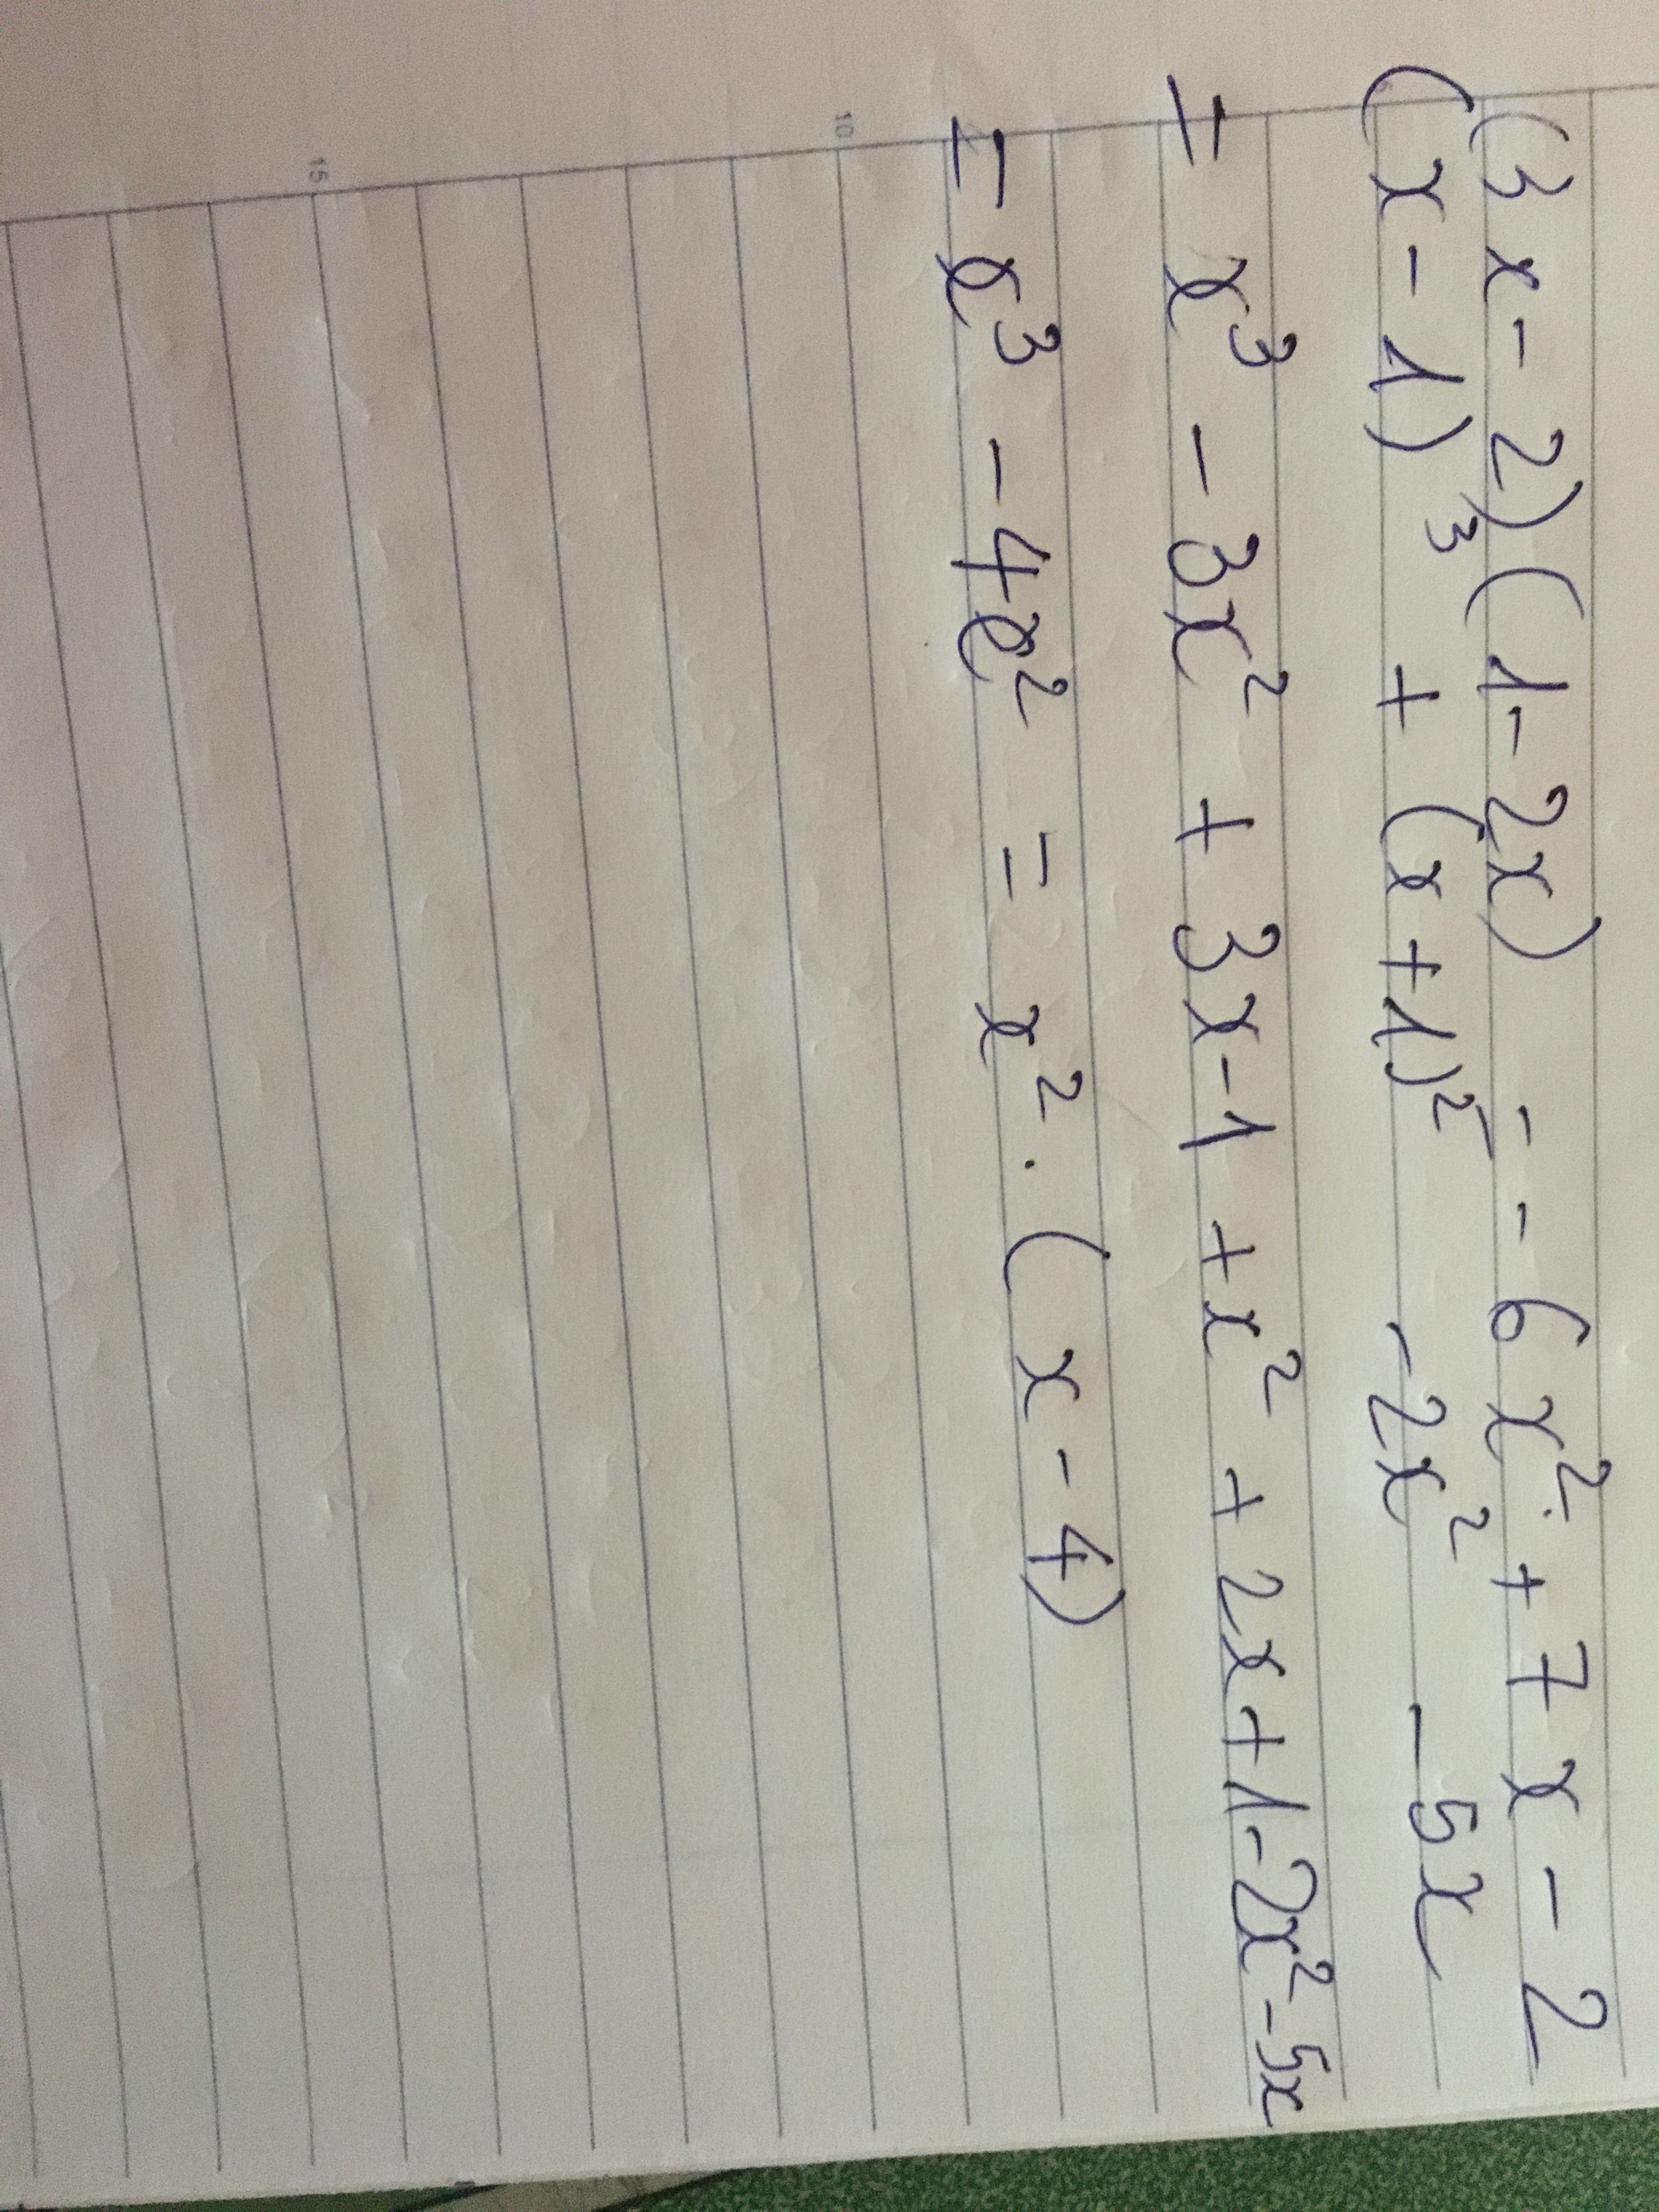 (3x-2)(1-2x) = -6x²+7x-2
(x-1)³ + (x+1)² -2x² -5x
= x³ -3x² + 3x-1 +x² +2x+1-2x²-5x
= x³ -4x² = x²·(x-4)
10
15